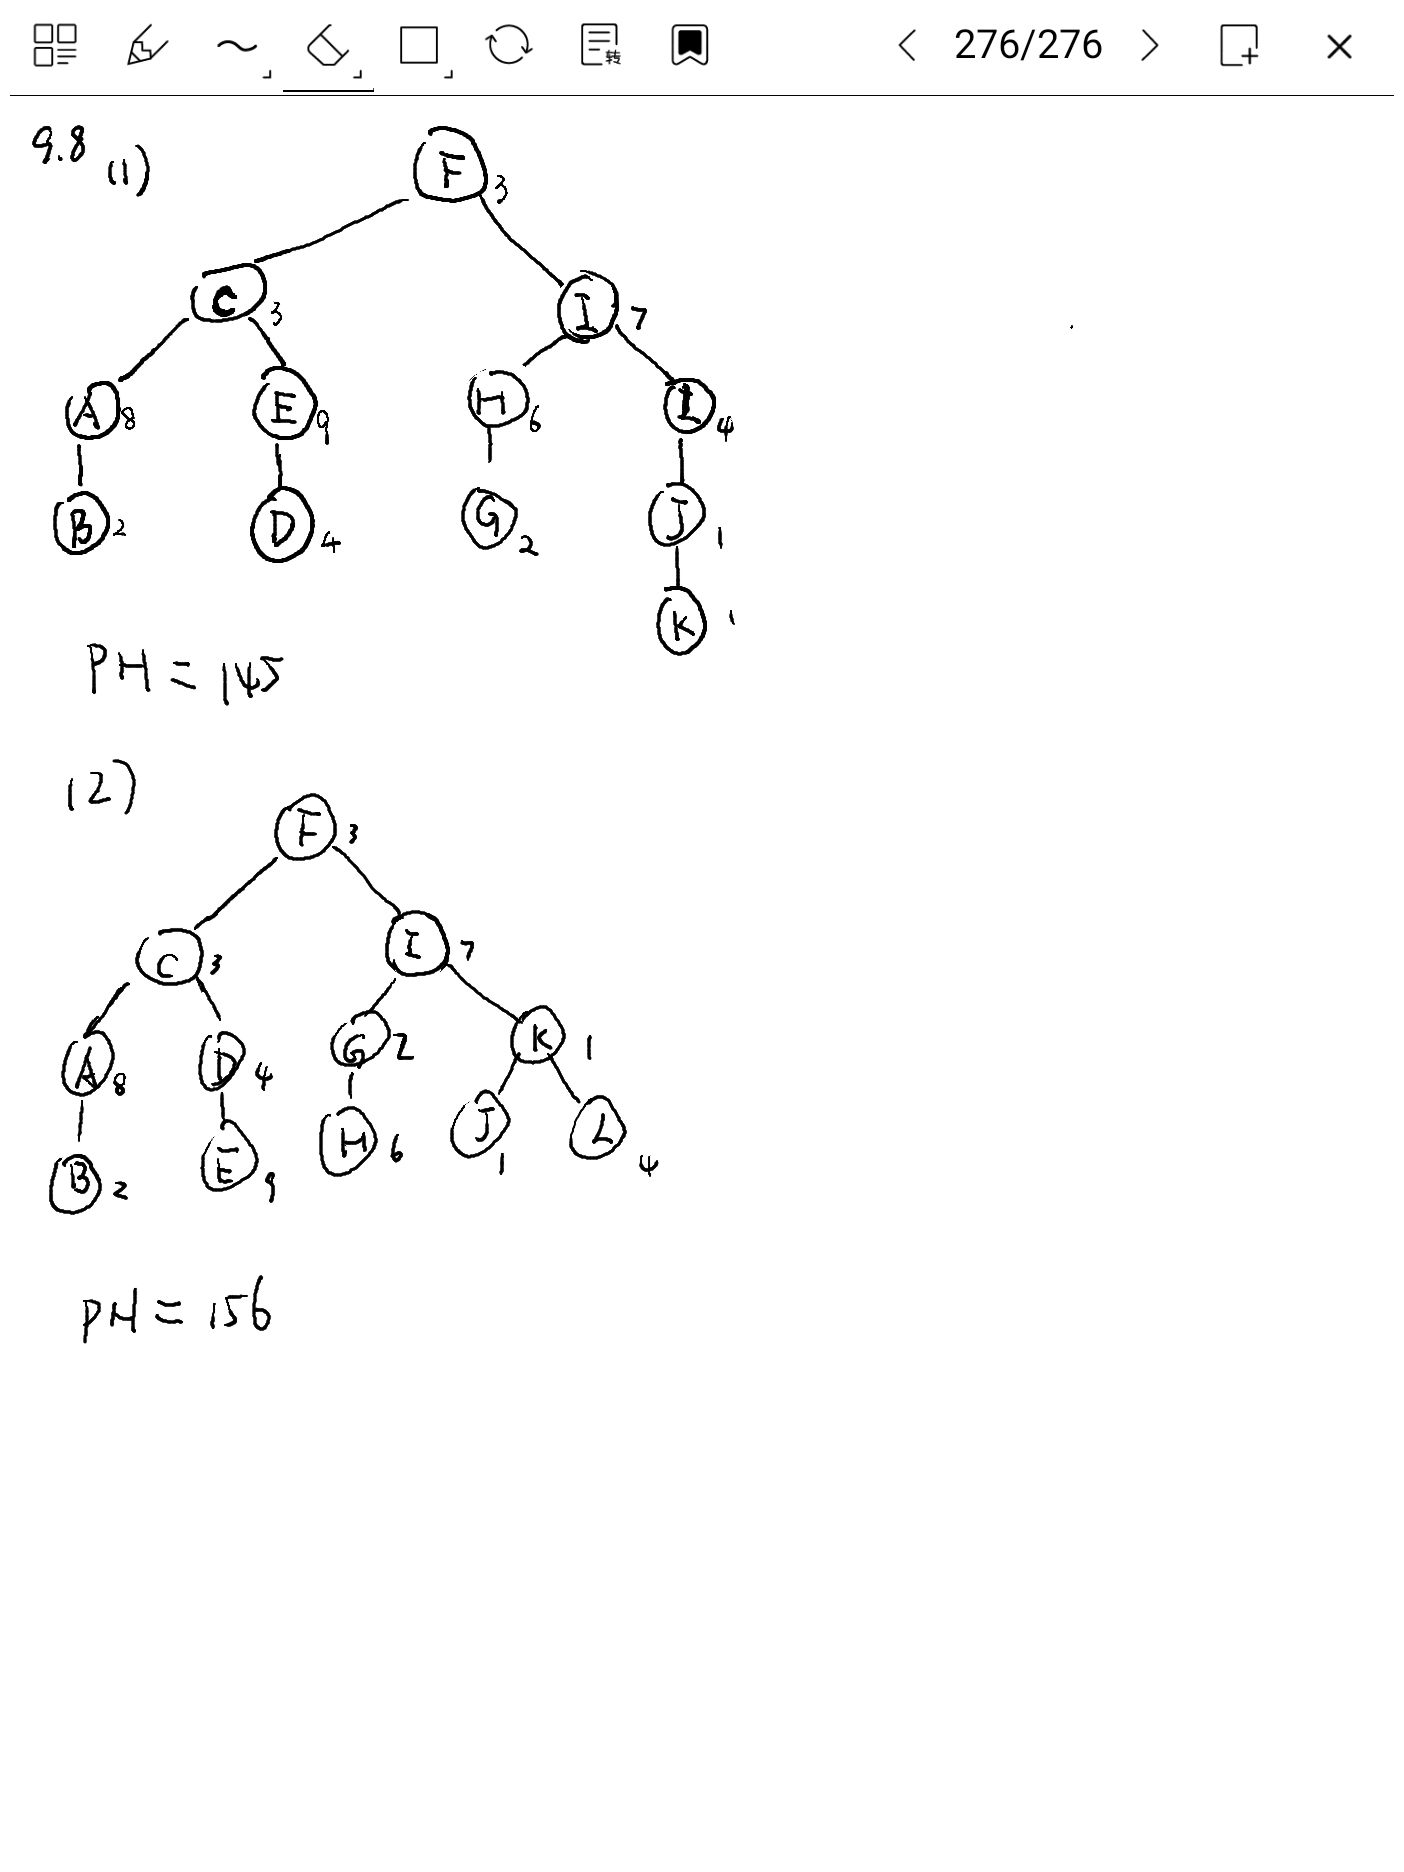 转 276/276
9.8 (1)
F 3
C 3 I 7
A 8 E 9 H 6 L 4
B 2 D 4 G 2 J 1
K 1
PH = 145
(2)
F 3
C 3 I 7
A 8 D 4 G 2 K 1
B 2 E 9 H 6 J 1 L 4
PH = 156